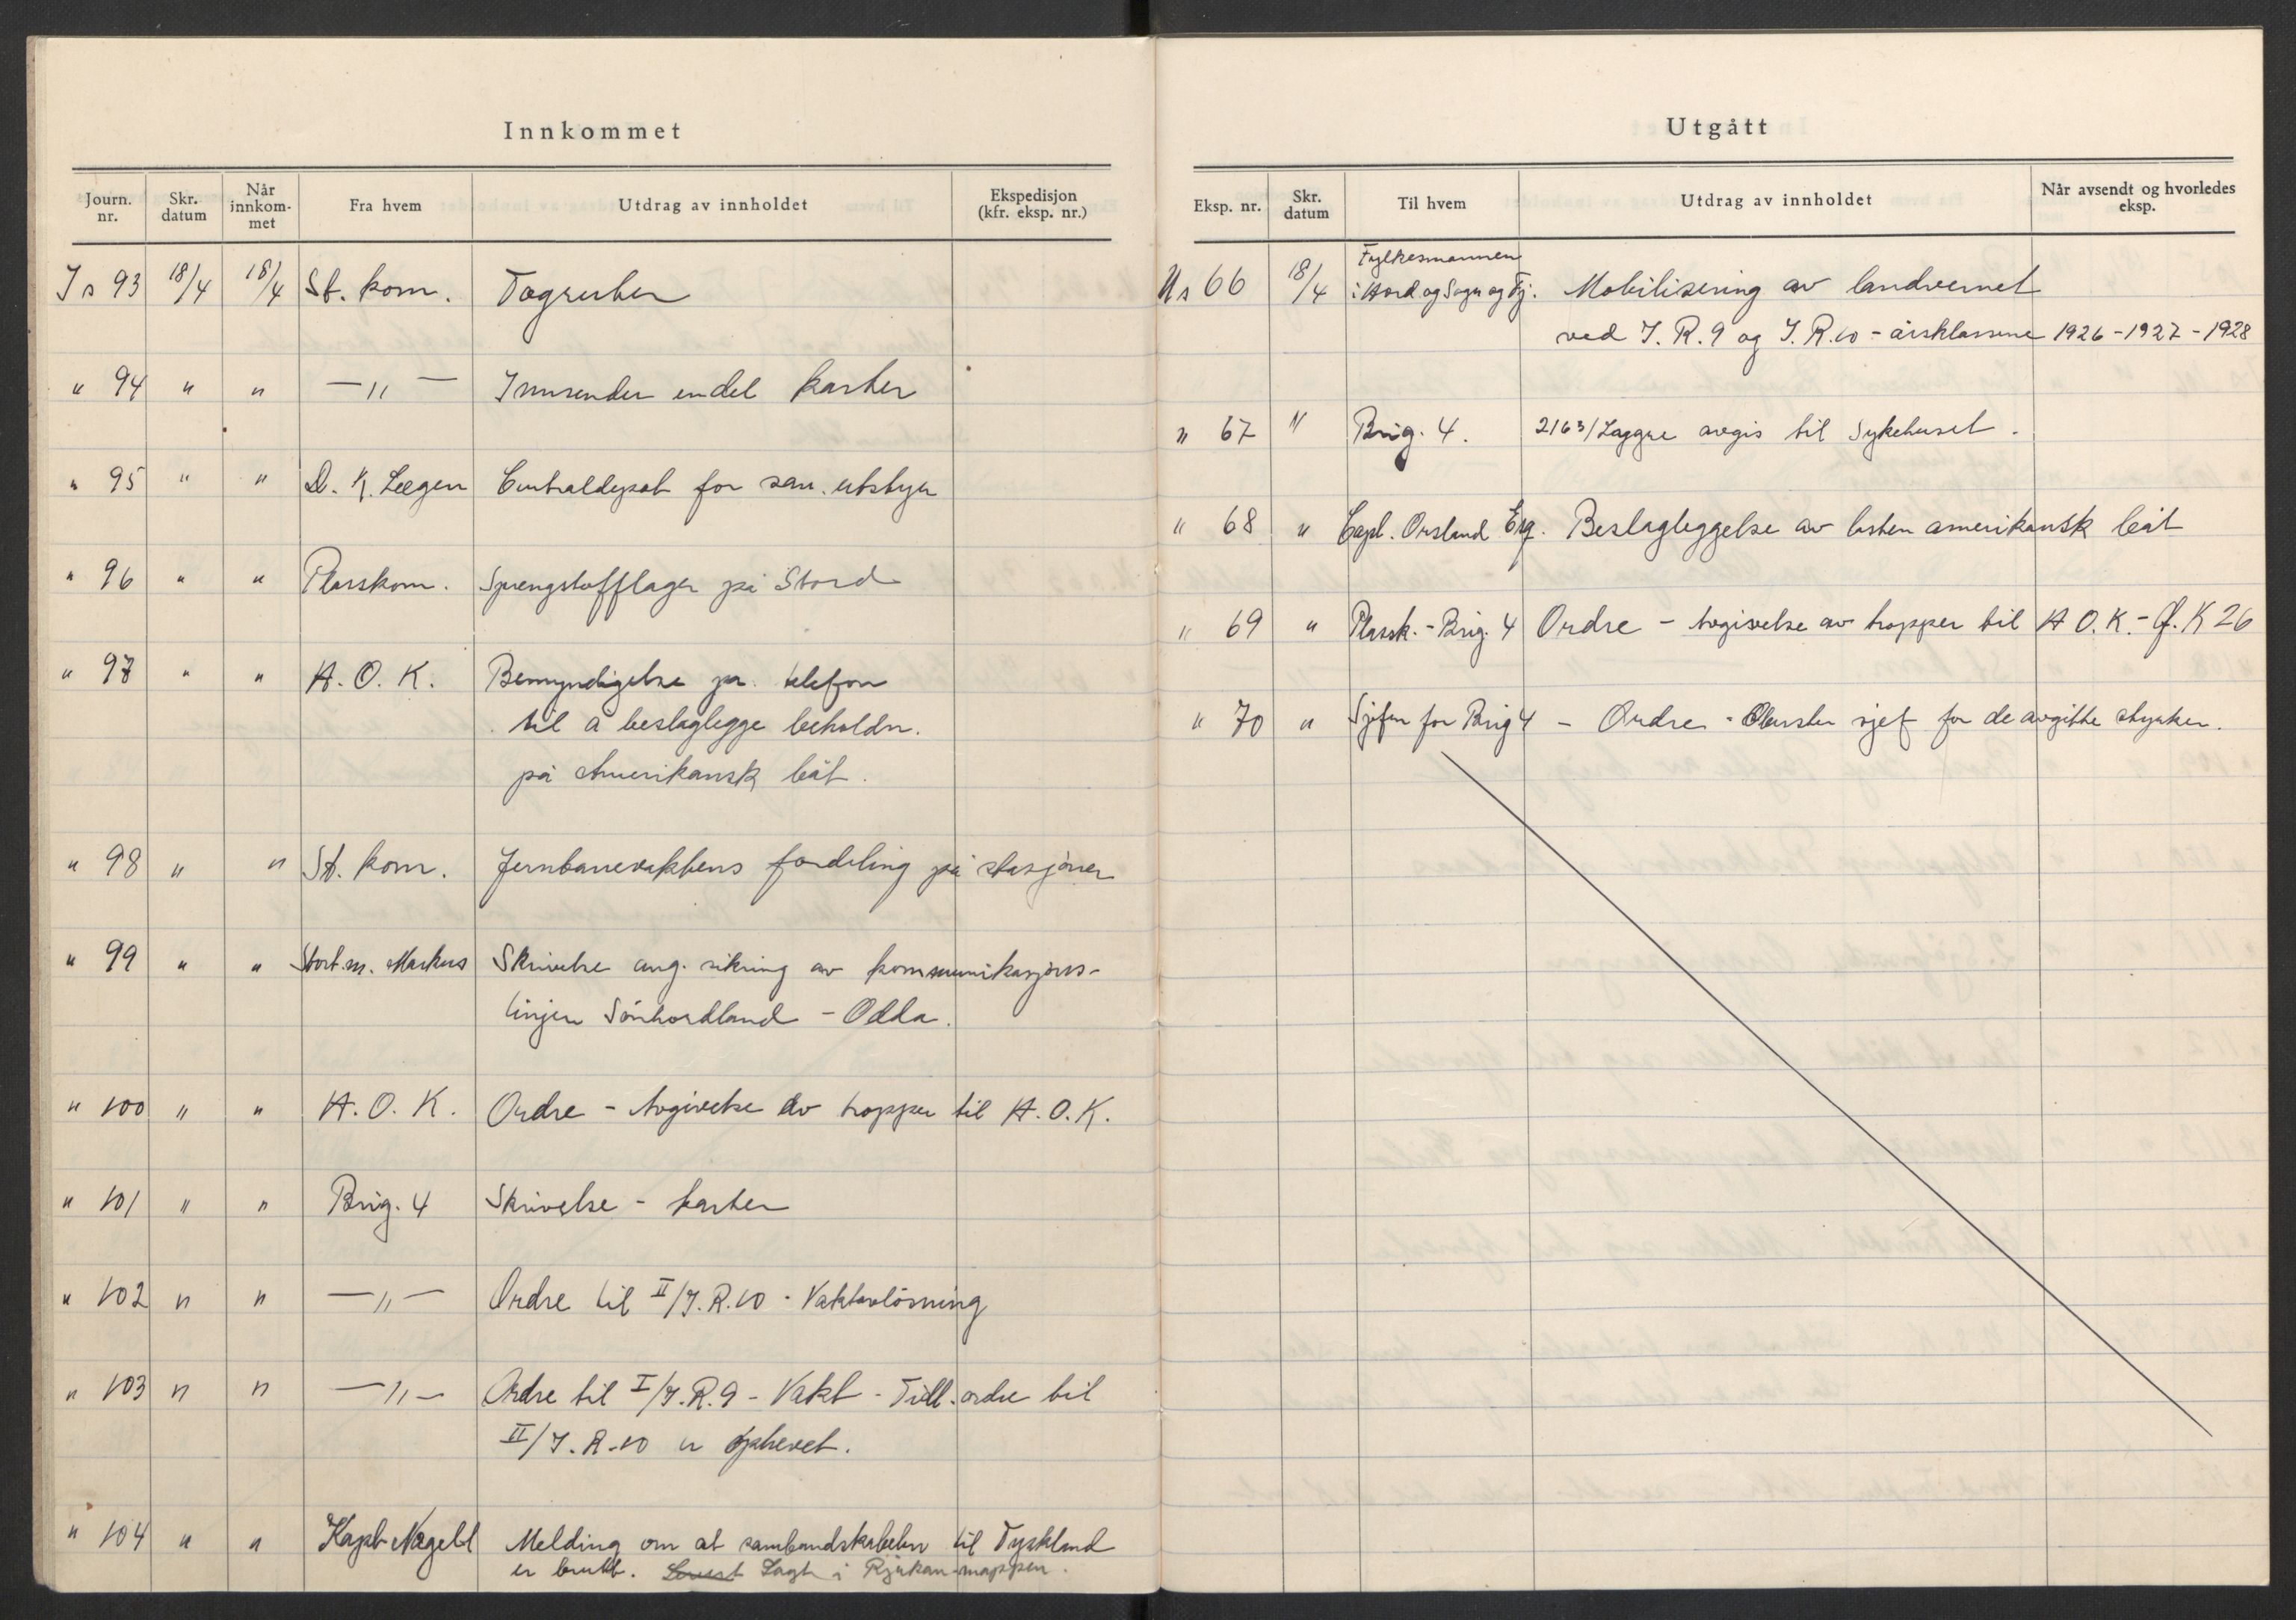 Innkommet
Journ. nr. Skr. datum Når innkom-met Fra hvem Utdrag av innholdet Ekspedisjon (kfr. eksp. nr.)
Is 93 18/4 18/4 St. kom. Togruter
" 94 " " —"— Innsender endel karter
" 95 " " D. K. Legen Centraldepot for san. utstyr
" 96 " " Plasskom. Sprengstofflager på Stord
" 97 " " H. O. K. Bemyndigelse pr. telefon
til å beslaglegge beholdn.
på Amerikansk båt.
" 98 " " St. kom. Jernbanevaktens fordeling på stasjoner
" 99 " " Stort.m. Markus Skrivelse ang. sikring av kommunikasjons-
linjen Sönhordland - Odda.
" 100 " " H. O. K. Ordre - Avgivelse av tropper til H. O. K.
" 101 " " Brig. 4 Skrivelse - karter
" 102 " " —"— Ordre til II/I.R.10 - Vaktavlösning
" 103 " " —"— Ordre til I/I.R.9 - Vakt - Tidl. ordre til
II/I.R.10 er ophevet.
" 104 " " Kapt. Nagell Melding om at sambandskabelen til Tyskland
er brutt. Lagt i Rjukan-mappen.
Utgått
Eksp. nr. Skr. datum Til hvem Utdrag av innholdet Når avsendt og hvorledes eksp.
Us 66 18/4 Fylkesmannen
i Hord og Sogn og Fj. Mobilisering av landvernet
ved I. R. 9 og I. R. 10 - årsklassene 1926 - 1927 - 1928
" 67 " Brig. 4. 2163/Laggre avgis til Sykehuset.
" 68 " Capt. Orsland Esq. Beslagleggelse av lasten amerikansk båt
" 69 " Plassk. - Brig. 4 Ordre - Avgivelse av tropper til H. O. K. - J. K 26
" 70 " Sjefen for Brig 4 - Ordre - Oberster sjef for de avgitte styrker.